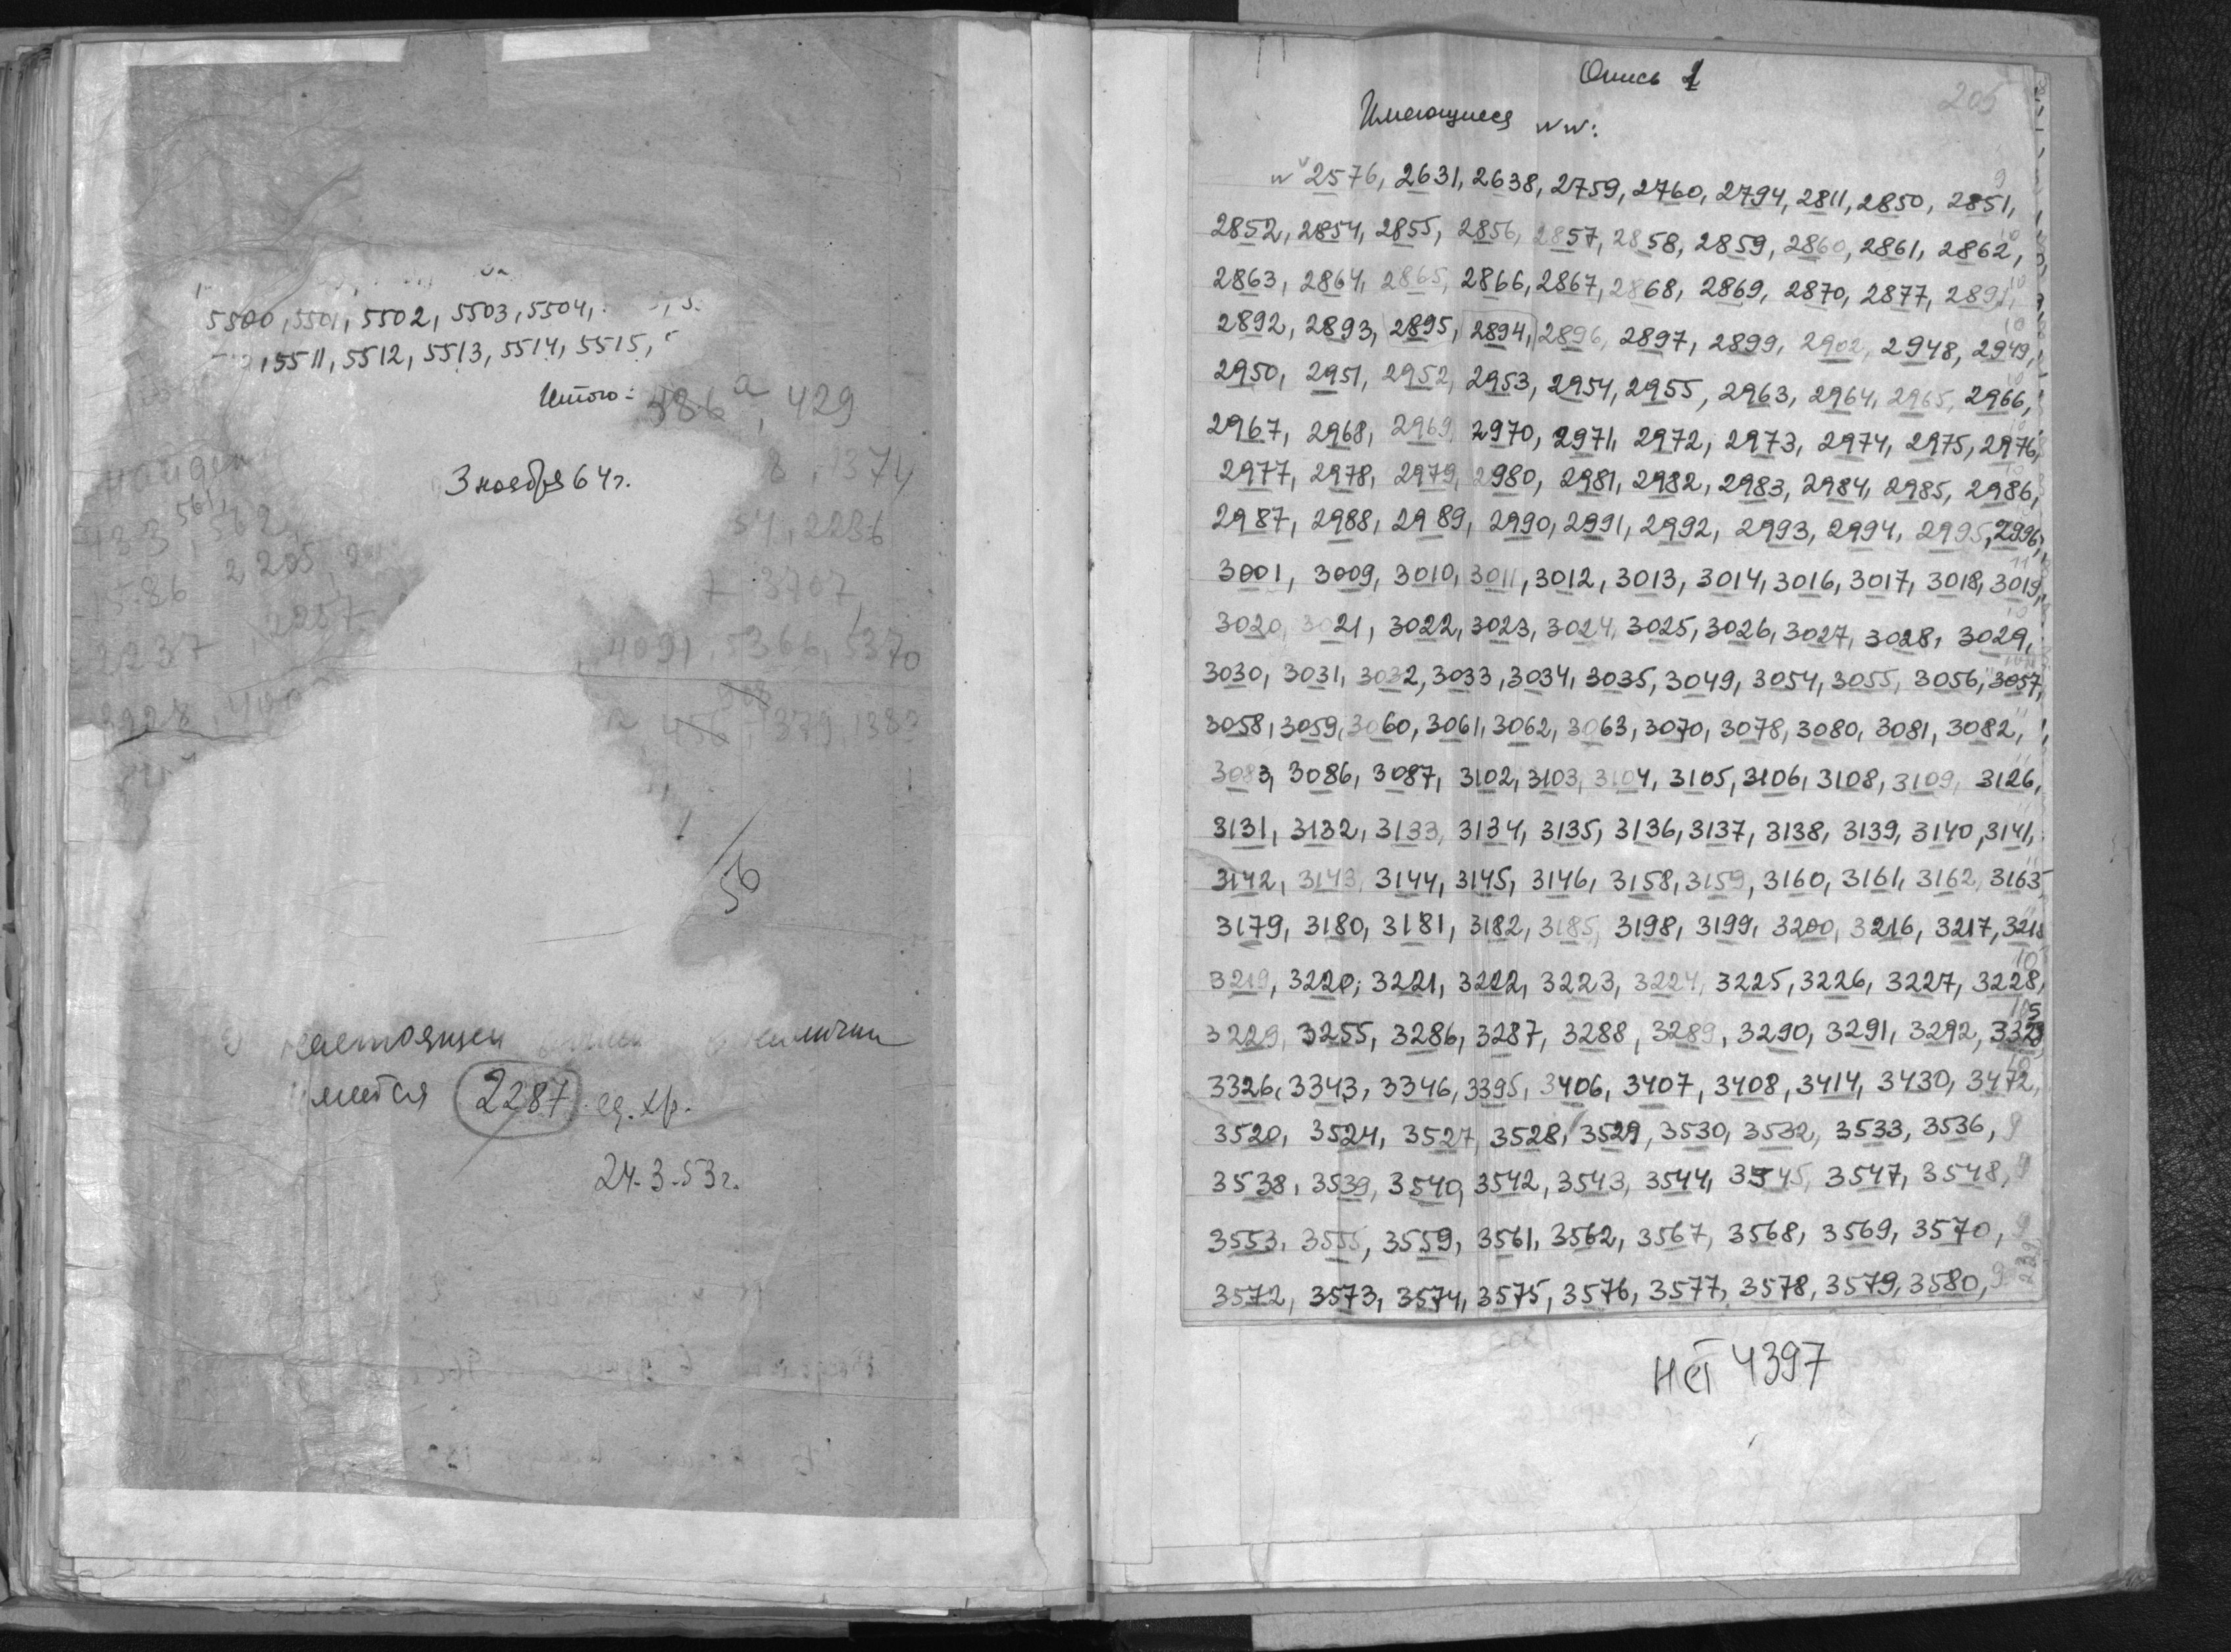 5500, 5501, 5502, 5503, 5504,
5511, 5512, 5513, 5514, 5515,
Итого: 386а, 429
3 ноября 64 г.
8, 1374
561,
433, 562,
54, 2236
586 2205,
7 3707,
2237, 2257
4091, 366, 1370
3928,
456, 379, 1383
56
настоящей наличии
имеется 2287 ед. хр.
24-3-53 г.
Опись 1
205
Имеющиеся NN:
N 2576, 2631, 2638, 2759, 2760, 2794, 2811, 2850, 2851, 9
2852, 2854, 2855, 2856, 2857, 2858, 2859, 2860, 2861, 2862, 10
2863, 2864, 2865, 2866, 2867, 2868, 2869, 2870, 2877, 2891, 10
2892, 2893, 2895, 2894, 2896, 2897, 2899, 2902, 2948, 2949, 10
2950, 2951, 2952, 2953, 2954, 2955, 2963, 2964, 2965, 2966, 10
2967, 2968, 2969, 2970, 2971, 2972, 2973, 2974, 2975, 2976, 10
2977, 2978, 2979, 2980, 2981, 2982, 2983, 2984, 2985, 2986, 10
2987, 2988, 2989, 2990, 2991, 2992, 2993, 2994, 2995, 2996,
3001, 3009, 3010, 3011, 3012, 3013, 3014, 3016, 3017, 3018, 3019, 11
3020, 3021, 3022, 3023, 3024, 3025, 3026, 3027, 3028, 3029, 10
3030, 3031, 3032, 3033, 3034, 3035, 3049, 3054, 3055, 3056, 3057,
3058, 3059, 3060, 3061, 3062, 3063, 3070, 3078, 3080, 3081, 3082, 11
3083, 3086, 3087, 3102, 3103, 3104, 3105, 3106, 3108, 3109, 3126, 11
3131, 3132, 3133, 3134, 3135, 3136, 3137, 3138, 3139, 3140, 3141,
3142, 3143, 3144, 3145, 3146, 3158, 3159, 3160, 3161, 3162, 3163, 11
3179, 3180, 3181, 3182, 3185, 3198, 3199, 3200, 3216, 3217, 3218 11
3219, 3220, 3221, 3222, 3223, 3224, 3225, 3226, 3227, 3228, 10
3229, 3255, 3286, 3287, 3288, 3289, 3290, 3291, 3292,
3326, 3343, 3346, 3395, 3406, 3407, 3408, 3414, 3430, 3472, 10
3520, 3524, 3527, 3528, 3529, 3530, 3532, 3533, 3536, 9
3538, 3539, 3540, 3542, 3543, 3544, 3545, 3547, 3548, 9
3553, 3555, 3559, 3561, 3562, 3567, 3568, 3569, 3570, 9
3572, 3573, 3574, 3575, 3576, 3577, 3578, 3579, 3580, 9
239
нет 4397